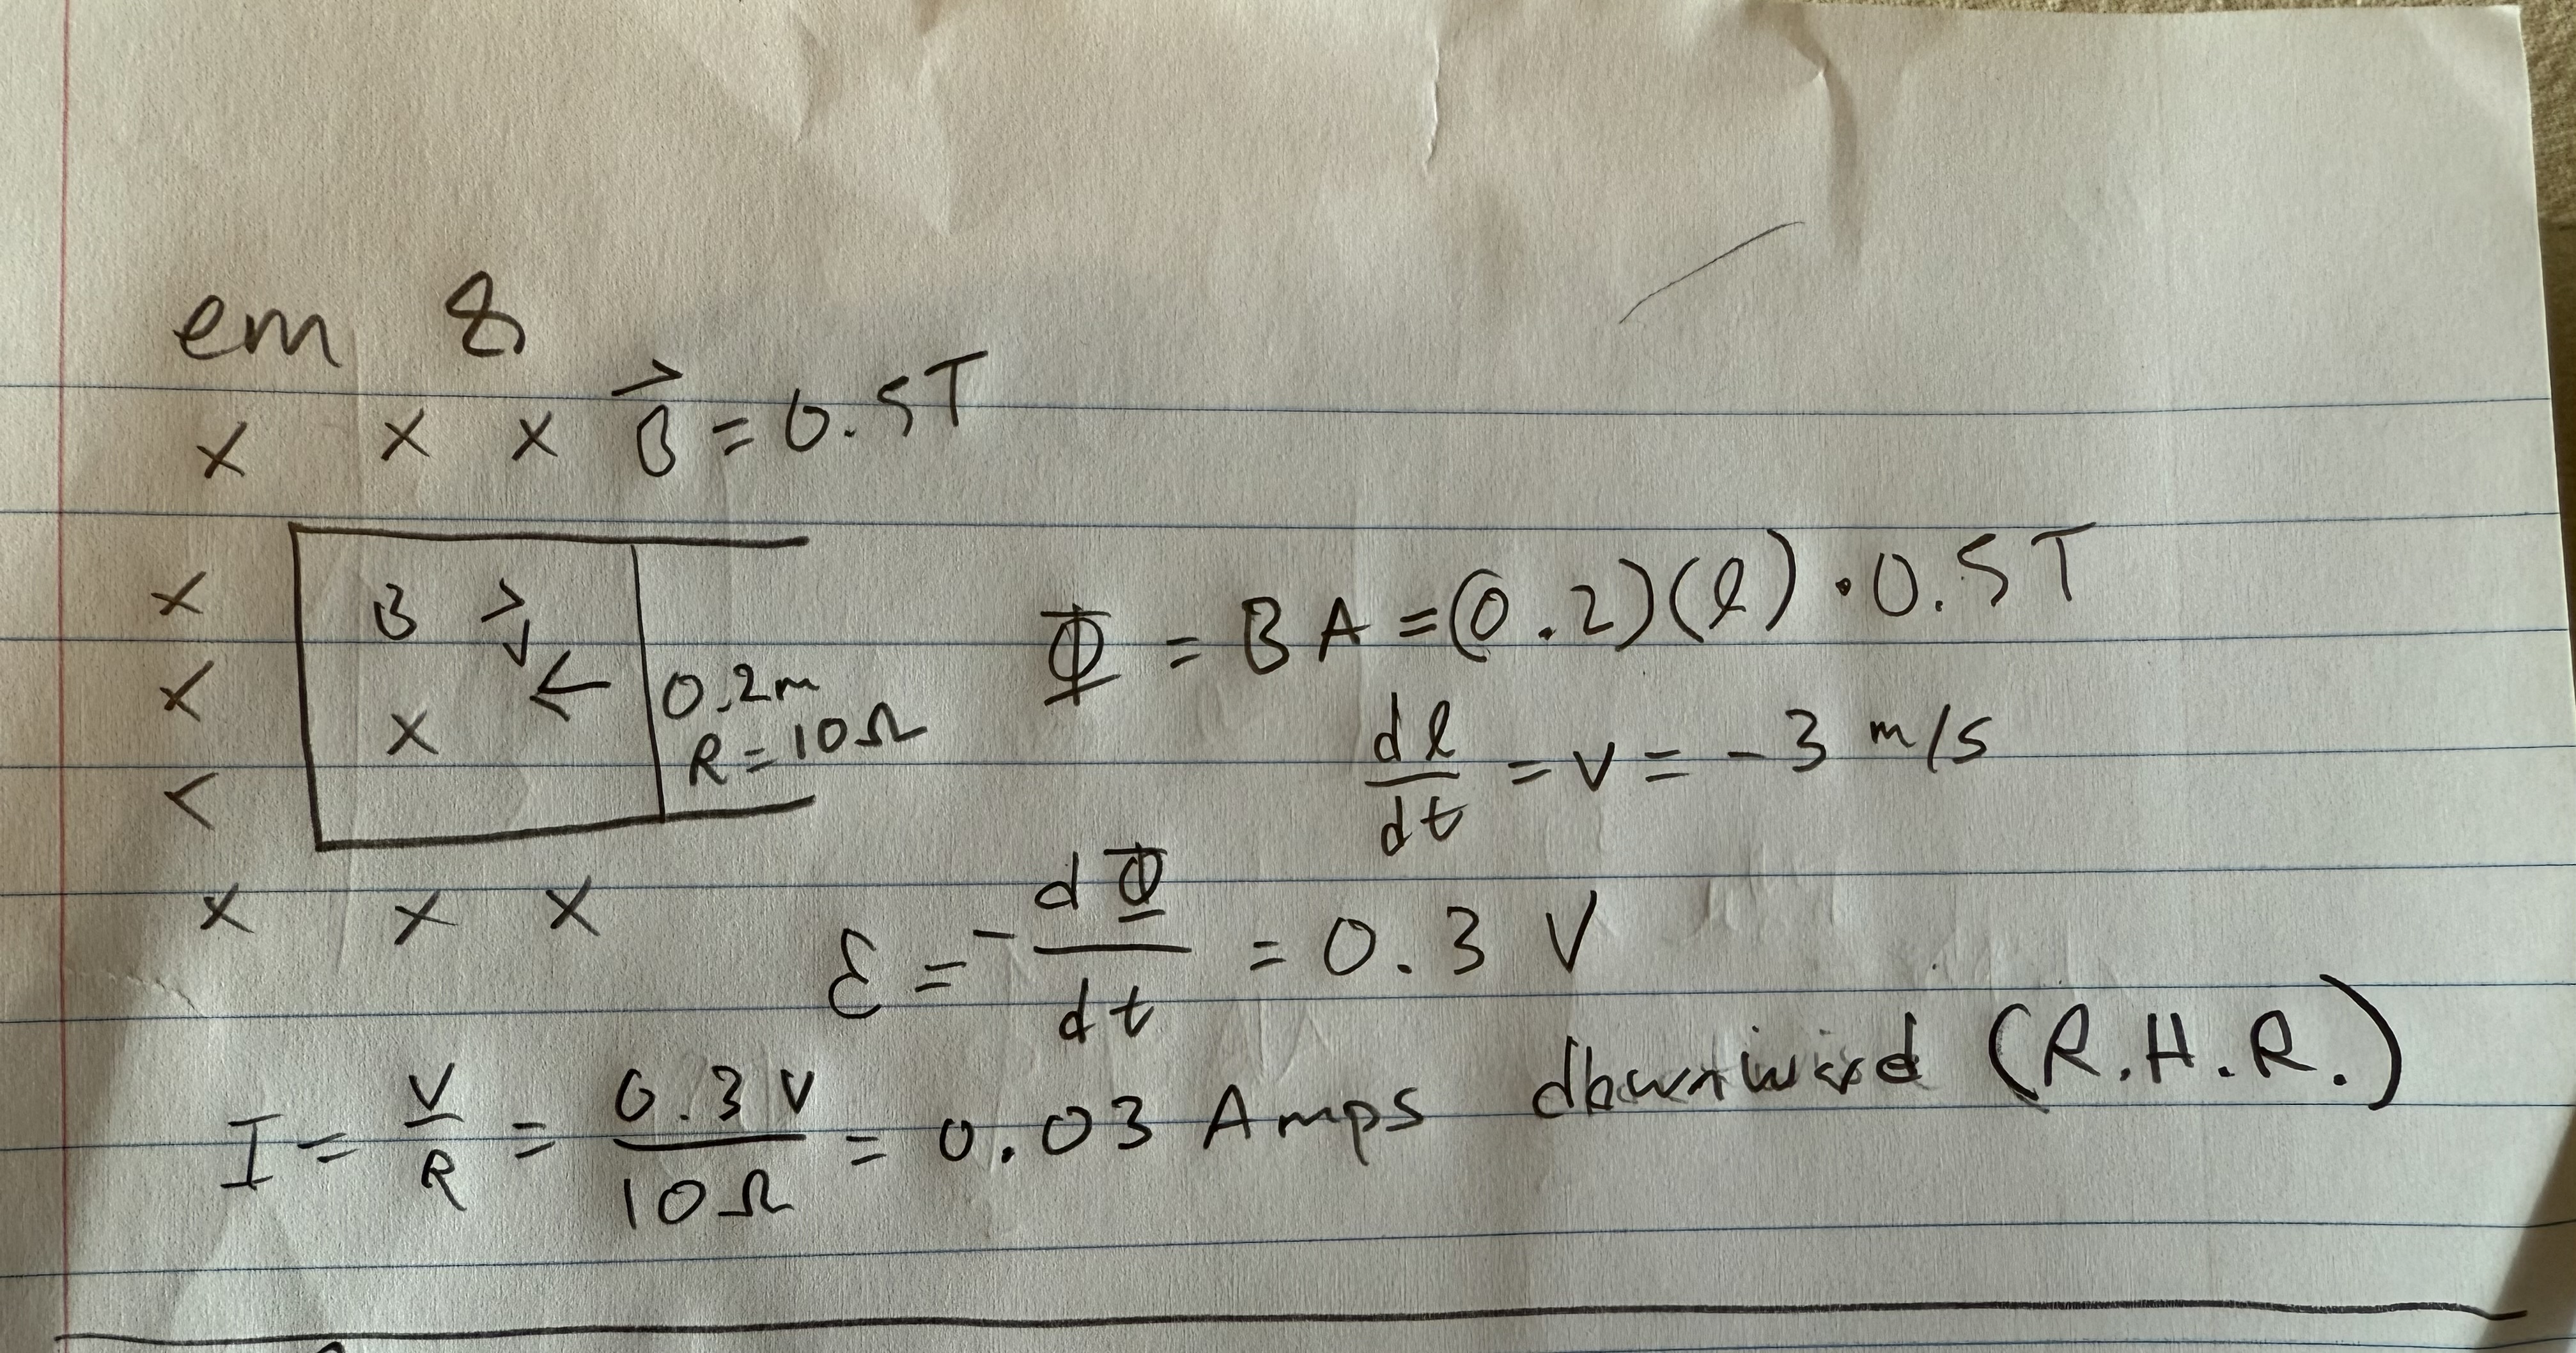 em 8
x x x B⃗ = 0.5T
x B v⃗ ←
x x
<
0.2m
R = 10Ω
x x x
Φ = BA = (0.2)(l) · 0.5T
dl/dt = v = -3 m/s
ε = -dΦ/dt = 0.3 V
I = V/R = 0.3 V/10Ω = 0.03 Amps downward (R.H.R.)